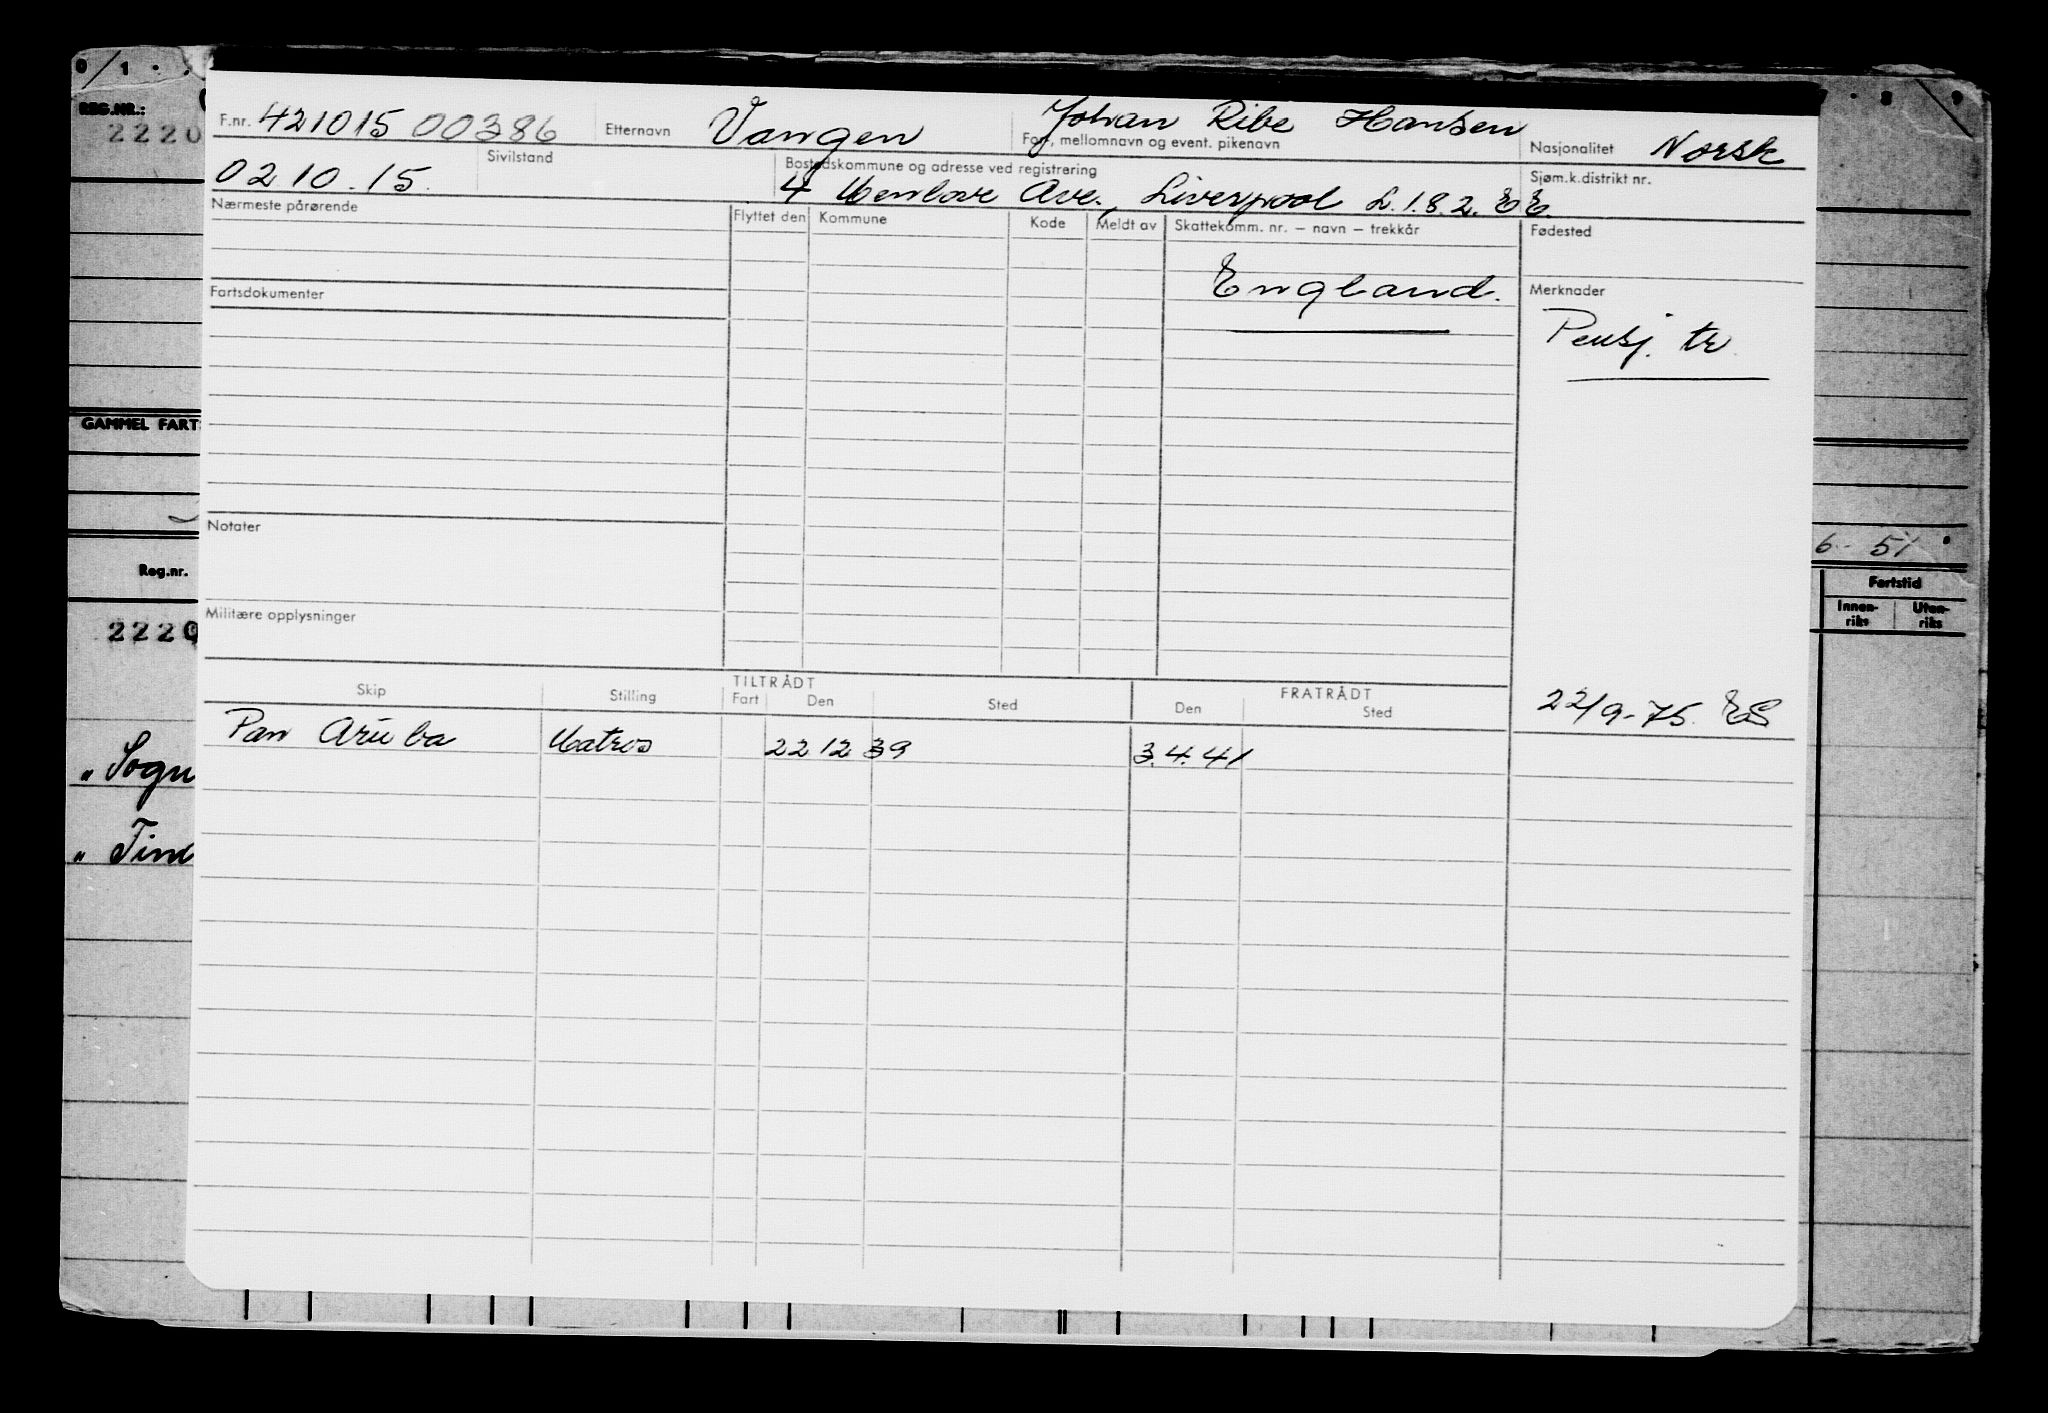 0 1 . . 7 . 8 9
REG.NR.:
2220
F.nr. 421015 00386 Etternavn Vangen Johan Ribe Hansen
For-, mellomnavn og event. pikenavn Nasjonalitet Norsk
02 10. 15. Sivilstand Bostedskommune og adresse ved registrering Sjøm.k.distrikt nr.
4 Menlove Ave., Liverpool L.1.8.2. EE
Nærmeste pårørende Flyttet den Kommune Kode Meldt av Skattekomm. nr. – navn – trekkår Fødested
England.
Fartsdokumenter Merknader
Pensj. tr.
GAMMEL FART
Notater
6 - 51
Reg.nr. Fartstid
Innen-riks Uten-riks
Militære opplysninger
2220
TILTRÅDT FRATRÅDT
Skip Stilling Fart Den Sted Den Sted
22/9-75. ES
Pan Aruba Matros 22 12 39 3.4.41
" Sogn
" Tind